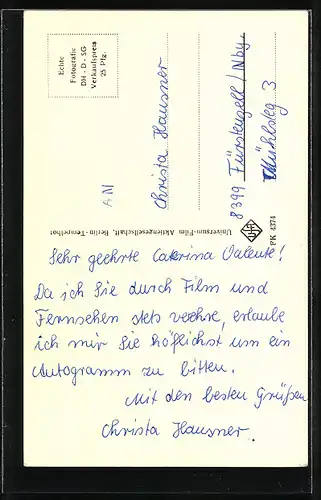 Echte
Fotografie
DM - D - SG
Verkaufspreis
25 Pfg.
AN
Christa Hausner
8399 Fürstenzell / Nby.
Mühlsteg 3
Universum-Film Aktiengesellschaft, Berlin-Tempelhof
PK 4374
Sehr geehrte Caterina Valente!
Da ich Sie durch Film und
Fernsehen stets verehre, erlaube
ich mir Sie höflichst um ein
Autogramm zu bitten.
Mit den besten Grüßen
Christa Hausner.